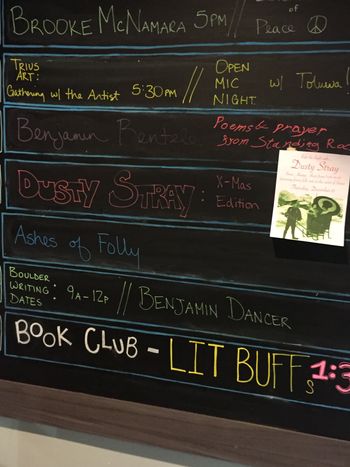 BROOKE McNAMARA 5PM // of Peace ☮
TRIUS ART: Gathering w/ the Artist 5:30 PM // OPEN MIC NIGHT w/ Toluwa
Benjamin
Poems & prayer from Standing Roc
DUSTY STRAY: X-Mas Edition
Dusty Stray
Ashes of Folly
BOULDER WRITING DATES : 9A-12P // BENJAMIN DANCER
BOOK CLUB - LIT BUFFs 1:3